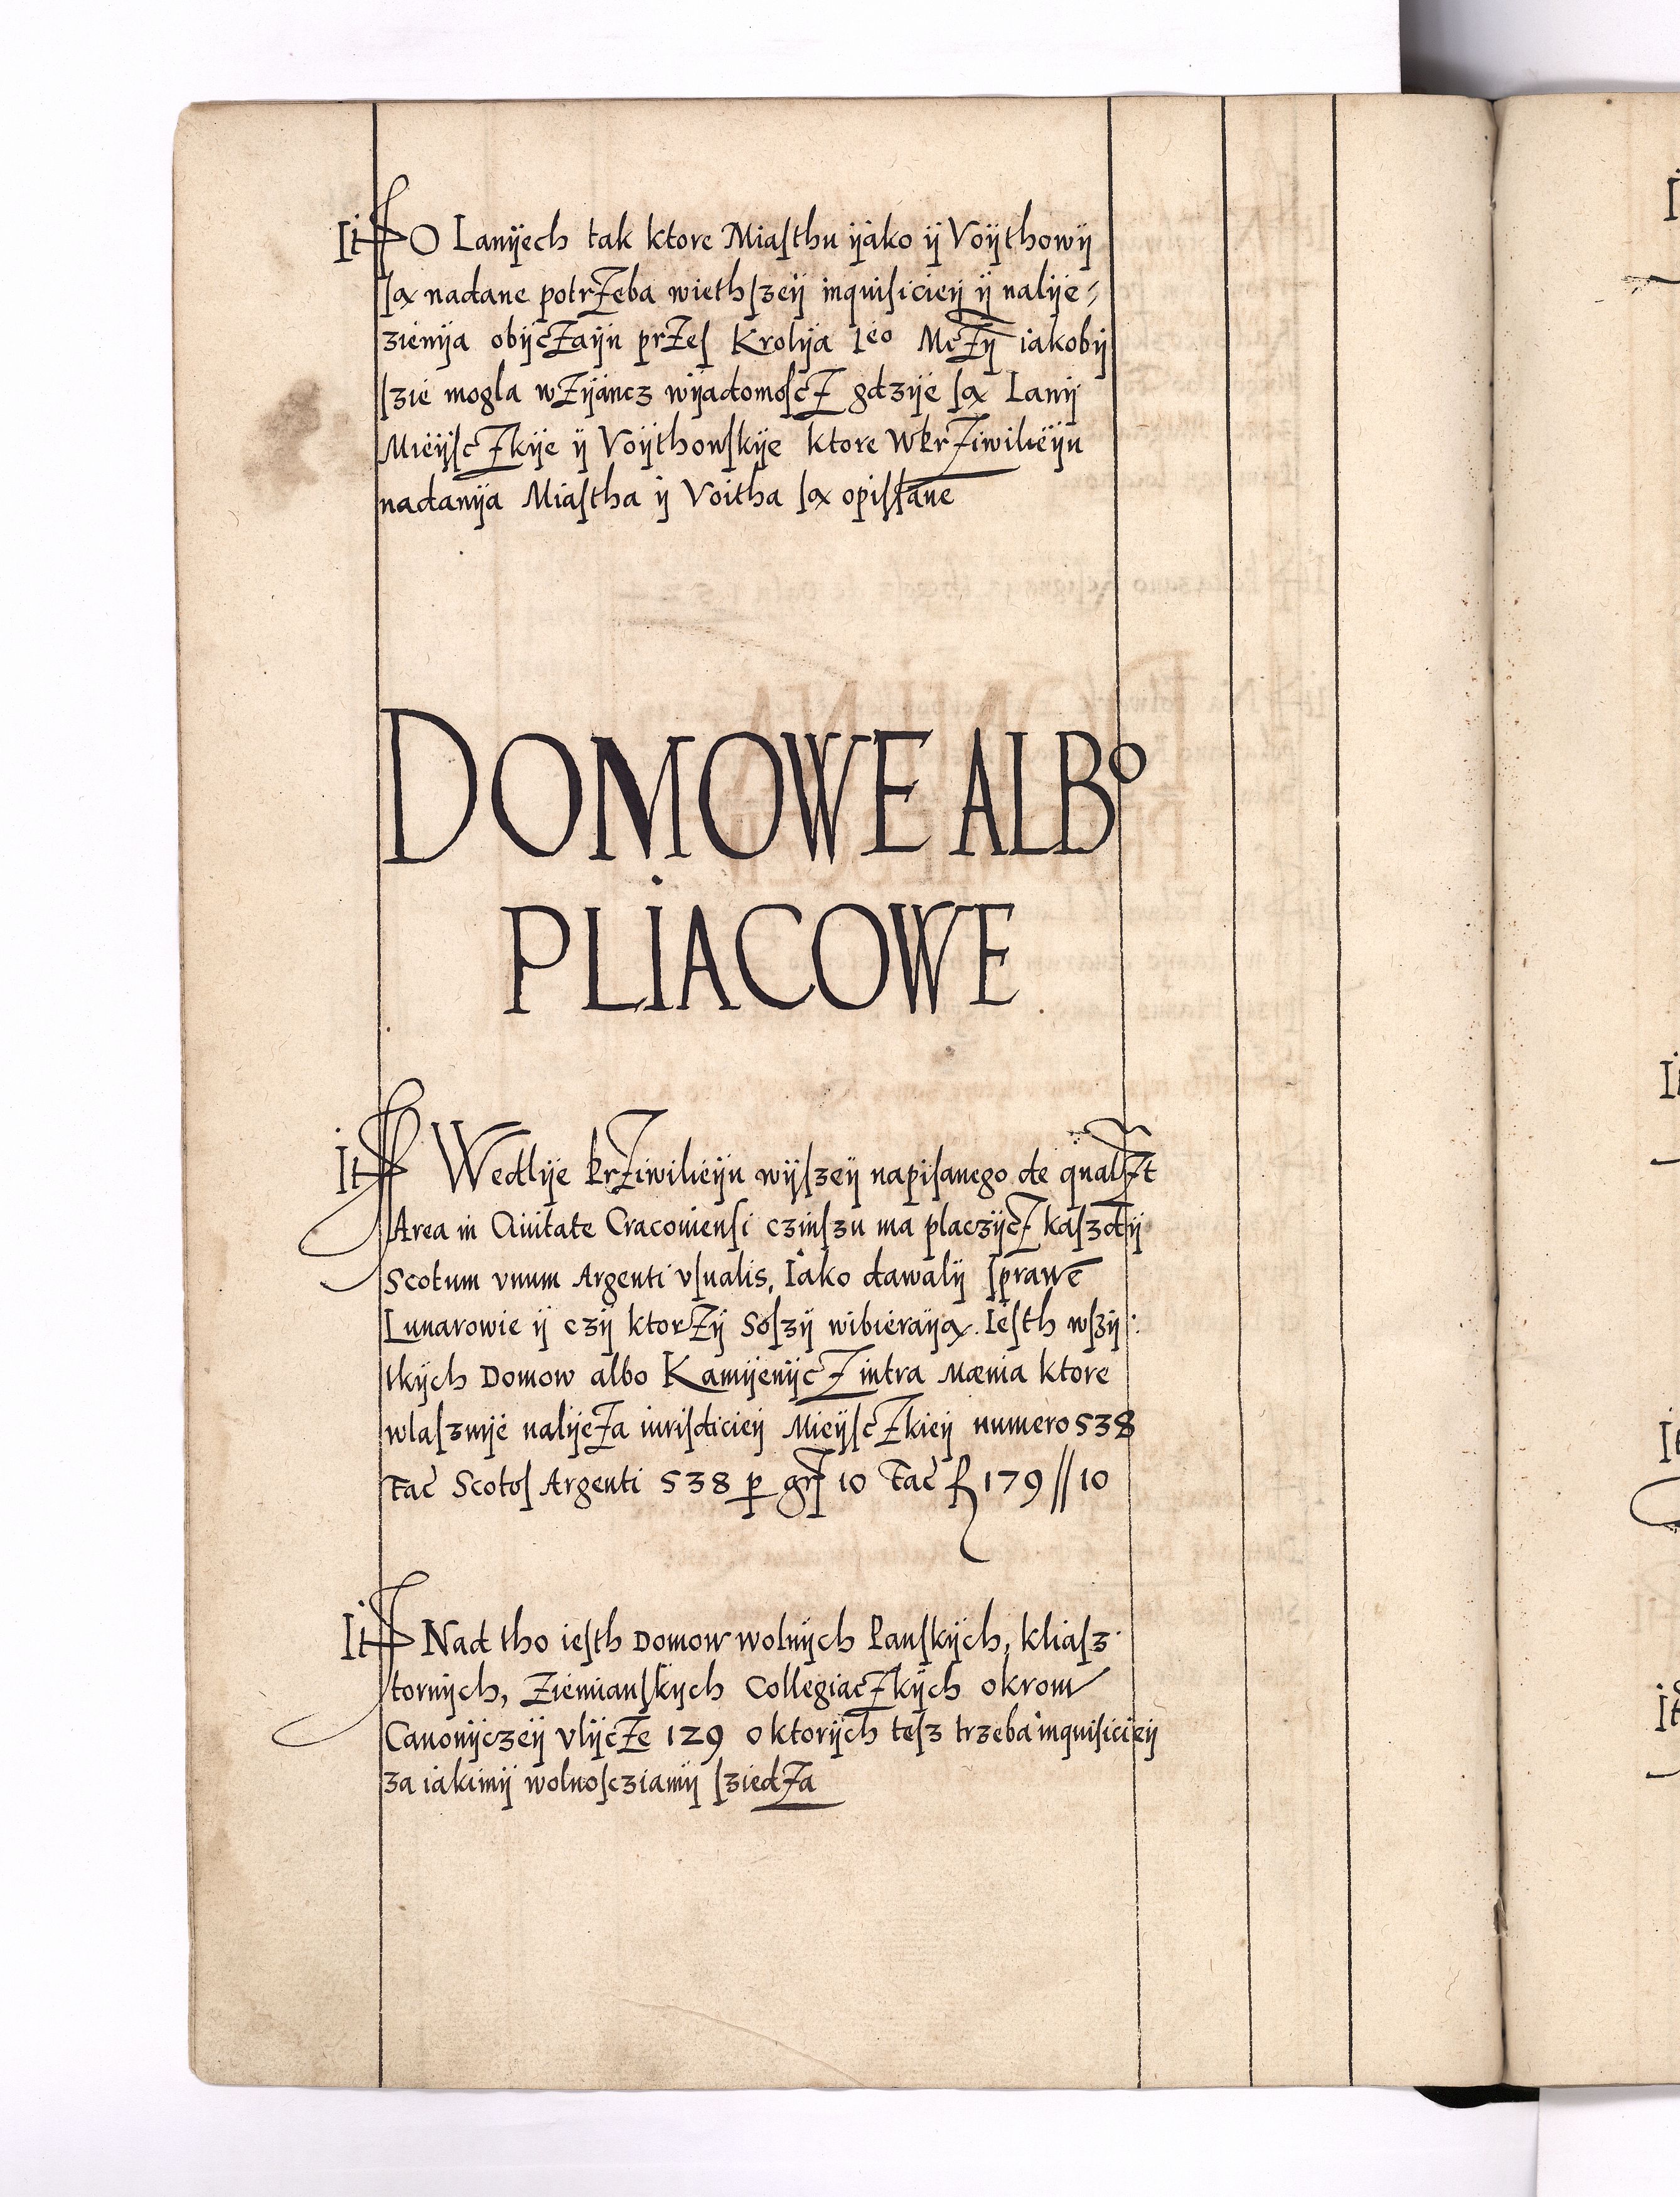 It O Lanÿech tak ktore Miaſthu ÿako ÿ Voÿthowÿ
ſą nadane potrZeba wiethſzeÿ inquiſicieÿ ÿ nalÿe⸗
zienÿa obÿcZaÿu prZeſ Krolÿa Ieo McZÿ iakobÿ
ſzie mogla wZÿancz wÿadomoſcZ gdzÿe ſą Lanÿ
MieÿſcZkÿe ÿ Voÿthowſkÿe ktore WkrZiwilieÿu
nadanÿa Miaſtha ÿ Voitha ſą opiſſane
DOMOWE ALBO
PLIACOWE
It Wedlÿe krZiwilieÿu wÿſzeÿ napiſanego de qualZt
Area in Ciuitate Cracouienſi czinſzu ma placzÿcZ kaſzdÿ
Scotum vnum Argenti vſualis, Iako dawalÿ ſprawe
Lunarowie ÿ czÿ ktorZÿ Soſzÿ wibieraÿą. Ieſth wſzÿ:
tkÿch Domow albo KamÿenÿcZ intra Mænia ktore
wlaſznÿe nalÿeZa iuriſdicieÿ MieÿſcZkieÿ numero 538
Fac̄ Scotoſ Argenti 538 p grſ 10 Fac̄ f 179 // 10
It Nad tho ieſth Domow wolnÿch Panſkÿch, kliaſz
tornÿch, Ziemianſkÿch CollegiacZkÿch okrom
Canonÿczeÿ vlÿcZe 129 o ktorÿch teſz trzeba inquiſicieÿ
za iakimÿ wolnoſcziamÿ ſziedZa